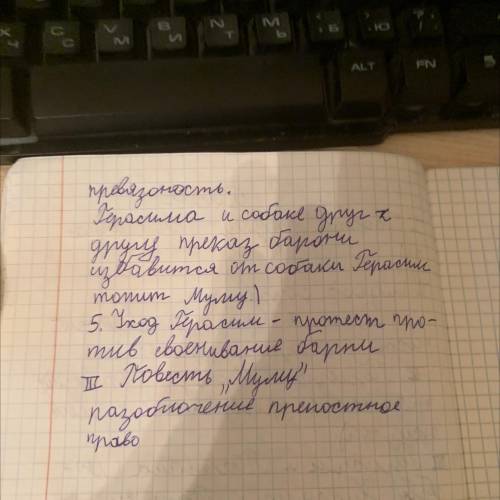 Ч С М И Т Ь Б Ю
ALT FN
превязоность.
Герасима и собаке друг к
другу преказ барони
избавится от собаки Герасим
топит Муму)
5. Уход Герасим - протест про-
тив своенивания барни
III Повесть "Муму"
разоблочение препостное
право